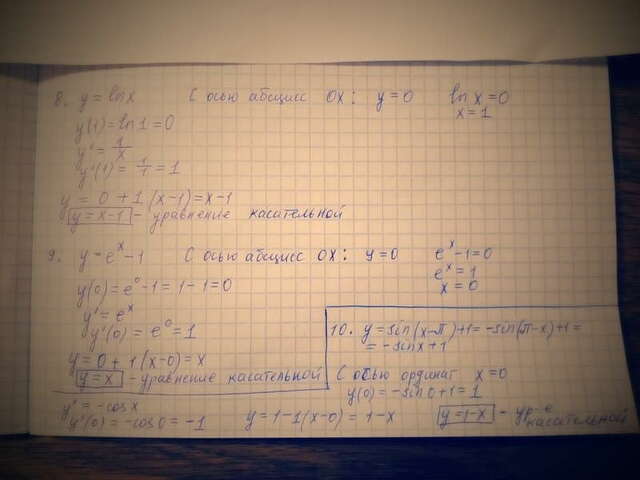 8. y = ln x   С осью абсцисс OX: y=0   ln x = 0
x = 1
y(1) = ln 1 = 0
y' = 1/x
y'(1) = 1/1 = 1
y = 0 + 1 (x-1) = x-1
y = x-1 - уравнение касательной
9. y = e^x - 1   С осью абсцисс OX: y=0   e^x - 1 = 0
e^x = 1
x = 0
y(0) = e^0 - 1 = 1 - 1 = 0
y' = e^x
y'(0) = e^0 = 1
y = 0 + 1 (x-0) = x
y = x - уравнение касательной
10. y = sin(x-π)+1 = -sin(π-x)+1 =
= -sin x + 1
С осью ординат x = 0
y(0) = -sin 0 + 1 = 1
y' = -cos x
y'(0) = -cos 0 = -1   y = 1-1(x-0) = 1-x   y = 1-x - ур-е касательной